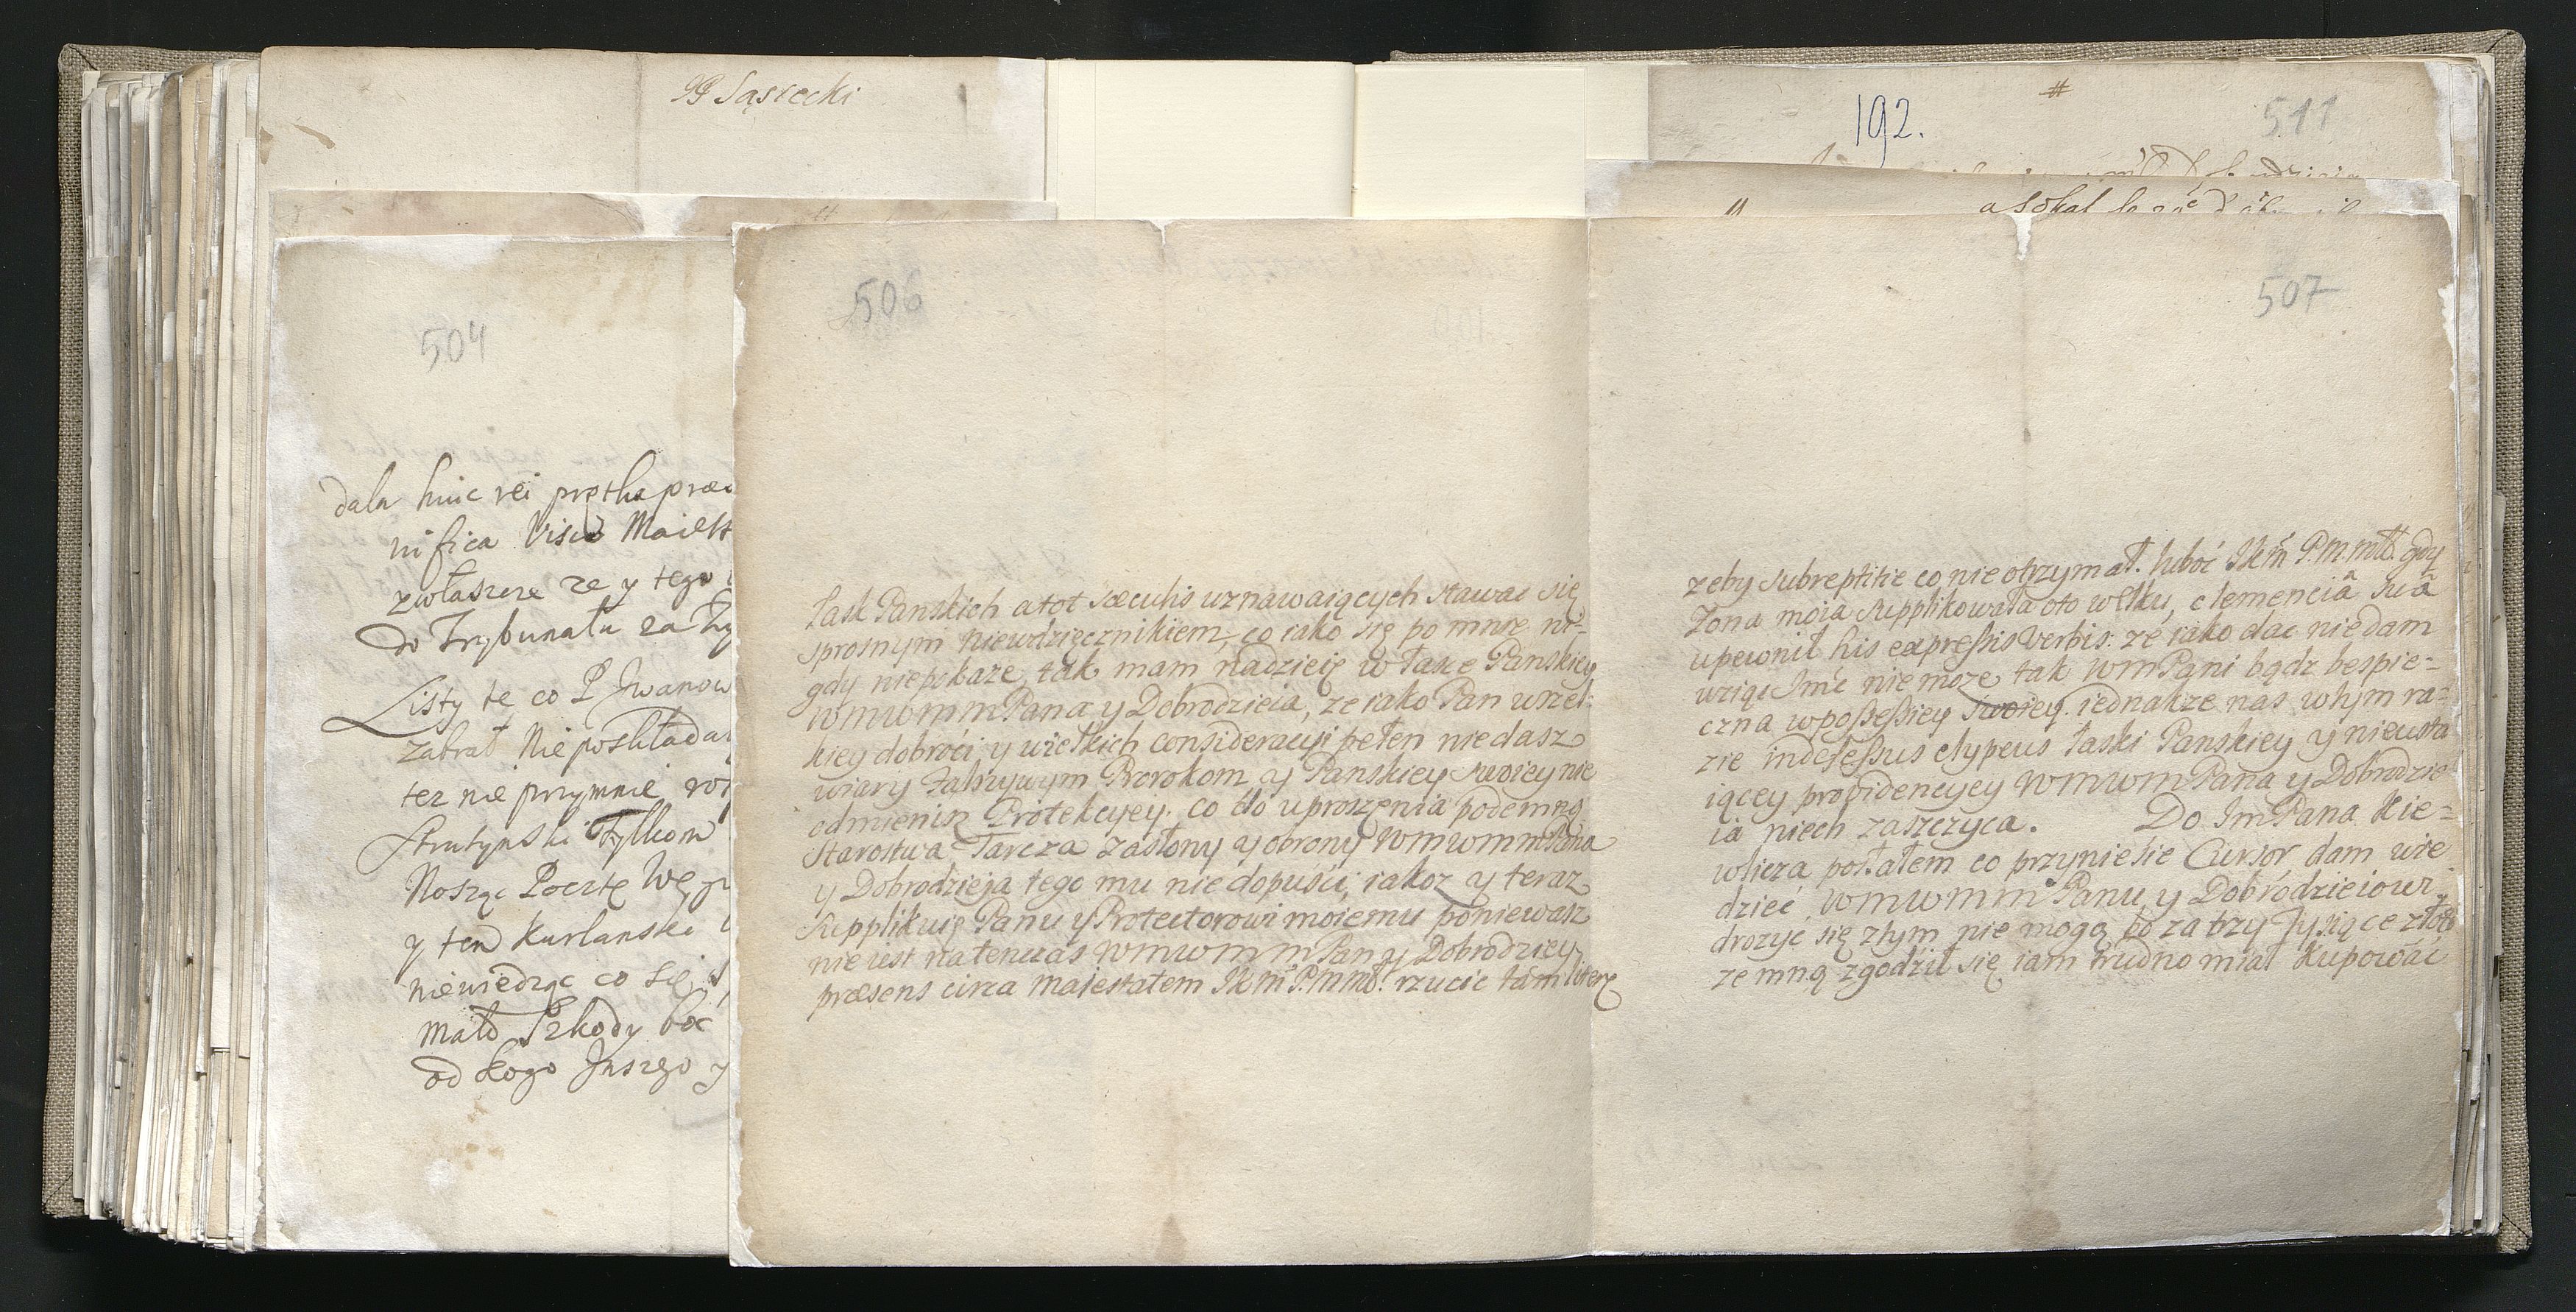 JP Sąsiecki
192.
511
504
dala hinc rei prętka
nifica Visis
zwłaszcza ze y tego
do Trybunału za
Listy te co P Jwanow
Zabrał Nie poskłada
tez nie przymnie
Strutynski Tylkom
Nosząc Pocztę We
y ten Kurlanski
niewiedząc co się
Mało Szkody boć
od kogo Jnszego y
506
łask Panskich a tot sæculis uznawaiących stawac się
sprosnym niewdzięcznikiem, co iako się po mnie ni=
gdy niepokaże, tak mam nadzieię w łasce Panskiey
WMWMMPana y Dobrodzieia, ze iako Pan wszel=
kiey dobroci y wielkich consideracyi pełen niedasz
wiary fałszywym Prorokom y Panskiey swoiey nie
odmienisz Protekcyey. co do uproszenia podemną
Starostwa, Tarcza zasłony y obrony WMWMMPana
y Dobrodzieja tego mu nie dopuści, iakoz y teraz
supplikuię Panu y Protectorowi moiemu poniewasz
nie iest natenczas WMWMMPan y Dobrodziey
præsens circa maiestatem JKM P.M.Mł. rzucic tam literę
507
zeby subreptitie co nie otrzymał. luboć JKM P.M.Mł. gdy
Zona moia supplikowała oto w Ełku, clemencią suą
upewnił his expressis verbis. ze iako dac niedam
wziąć Jmć nie moze tak WMPani bądz bespie=
czna w possessiey swoiey. iednakze nas w tym ra=
zie indefessus clypeus łaski Panskiey y nieusta
iącey providencyey WMWMPana y Dobrodzie
ia niech zaszczyca. Do JmPana Kie=
wlicza posłałem co przyniesie Cursor dam wie
dzieć WMWMMPanu y Dobrodzieiowi.
drozyć się ztym nie mogą bo za trzy Tysiące złot
ze mną zgodził się iam trudno miał kupować